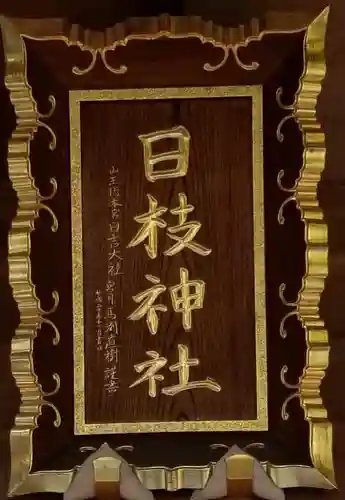 日枝神社
山王総本宮日吉大社宮司馬渕直樹謹書